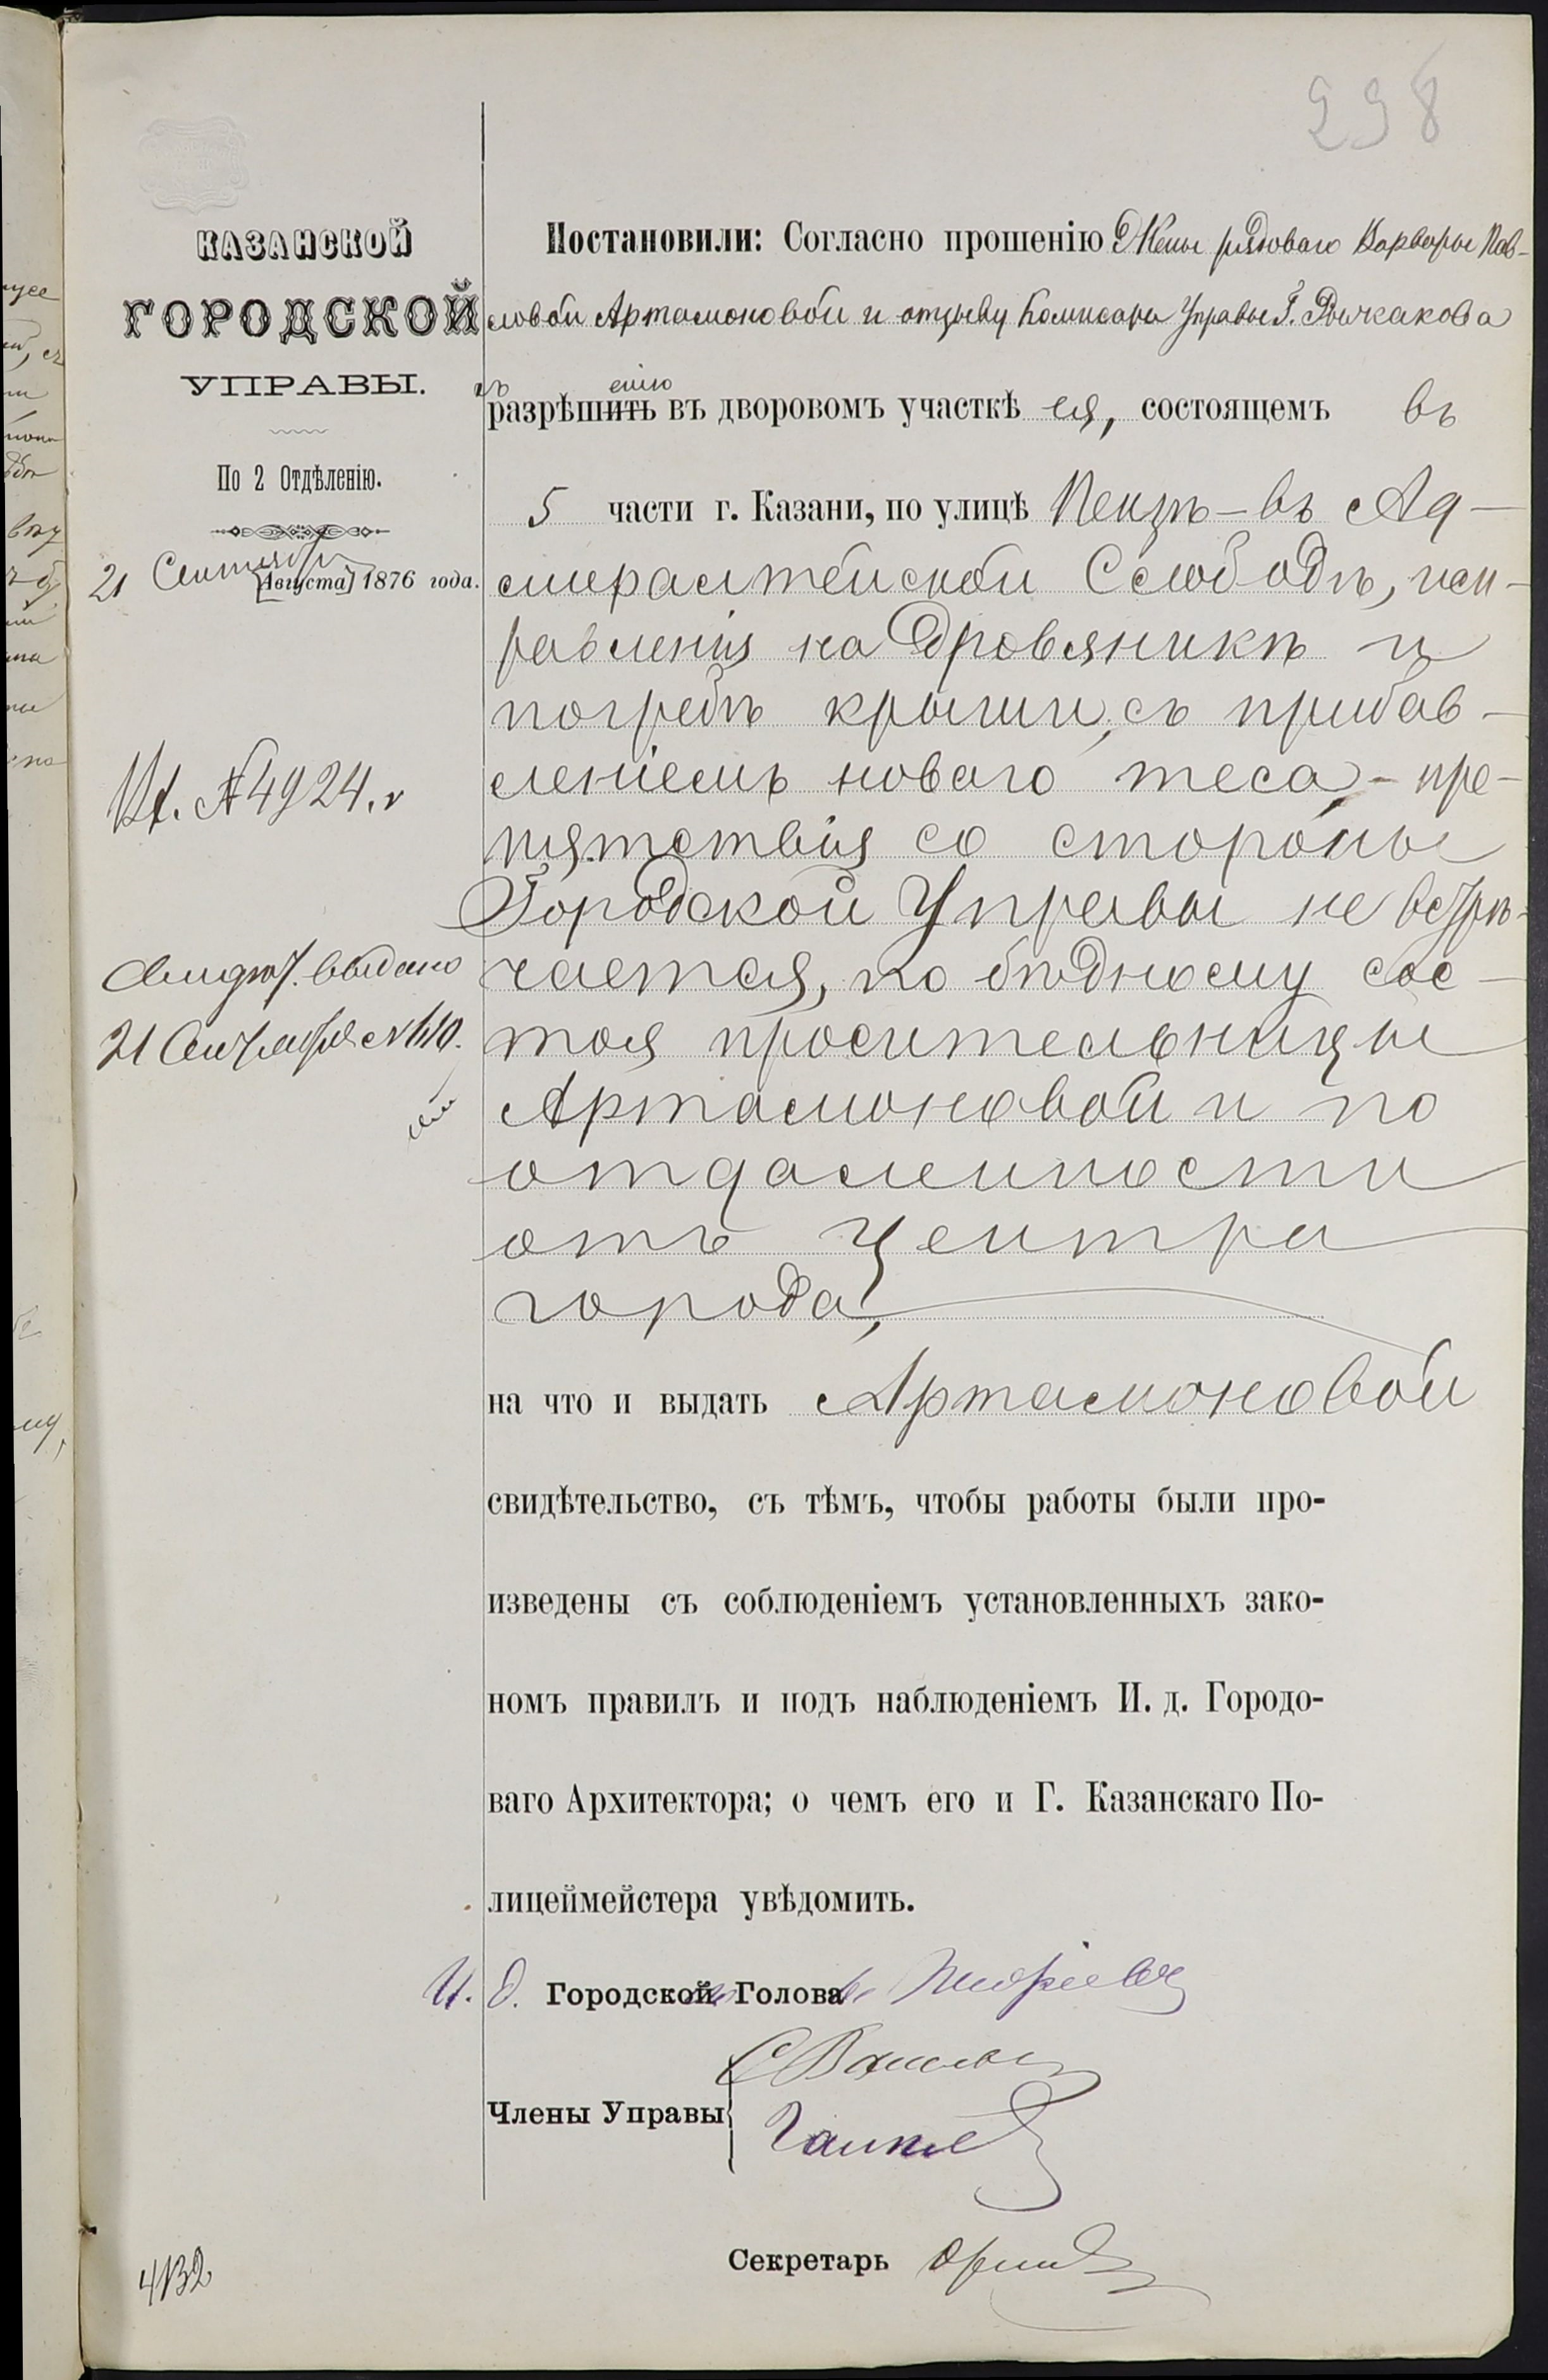 298
КАЗАНСКОЙ
ГОРОДСКОЙ
УПРАВЫ.
По 2 Отдѣленію.
21 Сентября [Августа] 1876 года.
Вх. №4924.
Свидѣт. выдано
21 Сентября №
Постановили: Согласно прошенію Жены рядоваго Варвары Пав-
ловой Артамоновой и отзыву Комисара Управы Г. Рычкакова
къ разрѣшить енію въ дворовомъ участкѣ ея, состоящемъ въ
5 части г. Казани, по улицѣ Пензѣ - въ Ад-
мералтейской Слободѣ, исп-
равленія на дровяникѣ и
погребѣ крыши, съ прибав-
леніемъ новаго теса, - пре-
пятствія со стороны
Городской Управы не встрѣ-
чается, по бѣдному сос-
тоя просительницы
Артамоновой и по
отдаленности
отъ центра
города,
на что и выдать Артамоновой
свидѣтельство, съ тѣмъ, чтобы работы были про-
изведены съ соблюденіемъ установленныхъ зако-
номъ правилъ и подъ наблюденіемъ И. д. Городо-
ваго Архитектора; о чемъ его и Г. Казанскаго По-
лицеймейстера увѣдомить.
И. д. Городской Голова
Члены Управы
Секретарь
4132